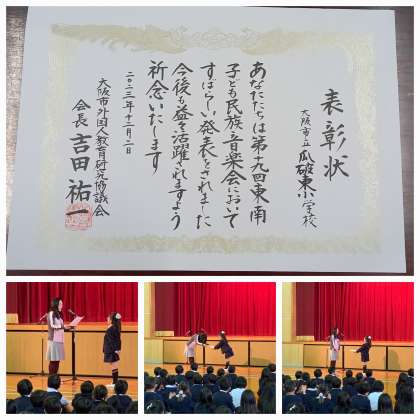 表彰状
大阪市立瓜破東小学校
あなたたちは第十九回東南
子ども民族音楽会において
すばらしい発表をされました
今後も益々活躍されますよう
祈念いたします
二〇二三年十二月二日
大阪市外国人教育研究協議会
会長 吉田祐一